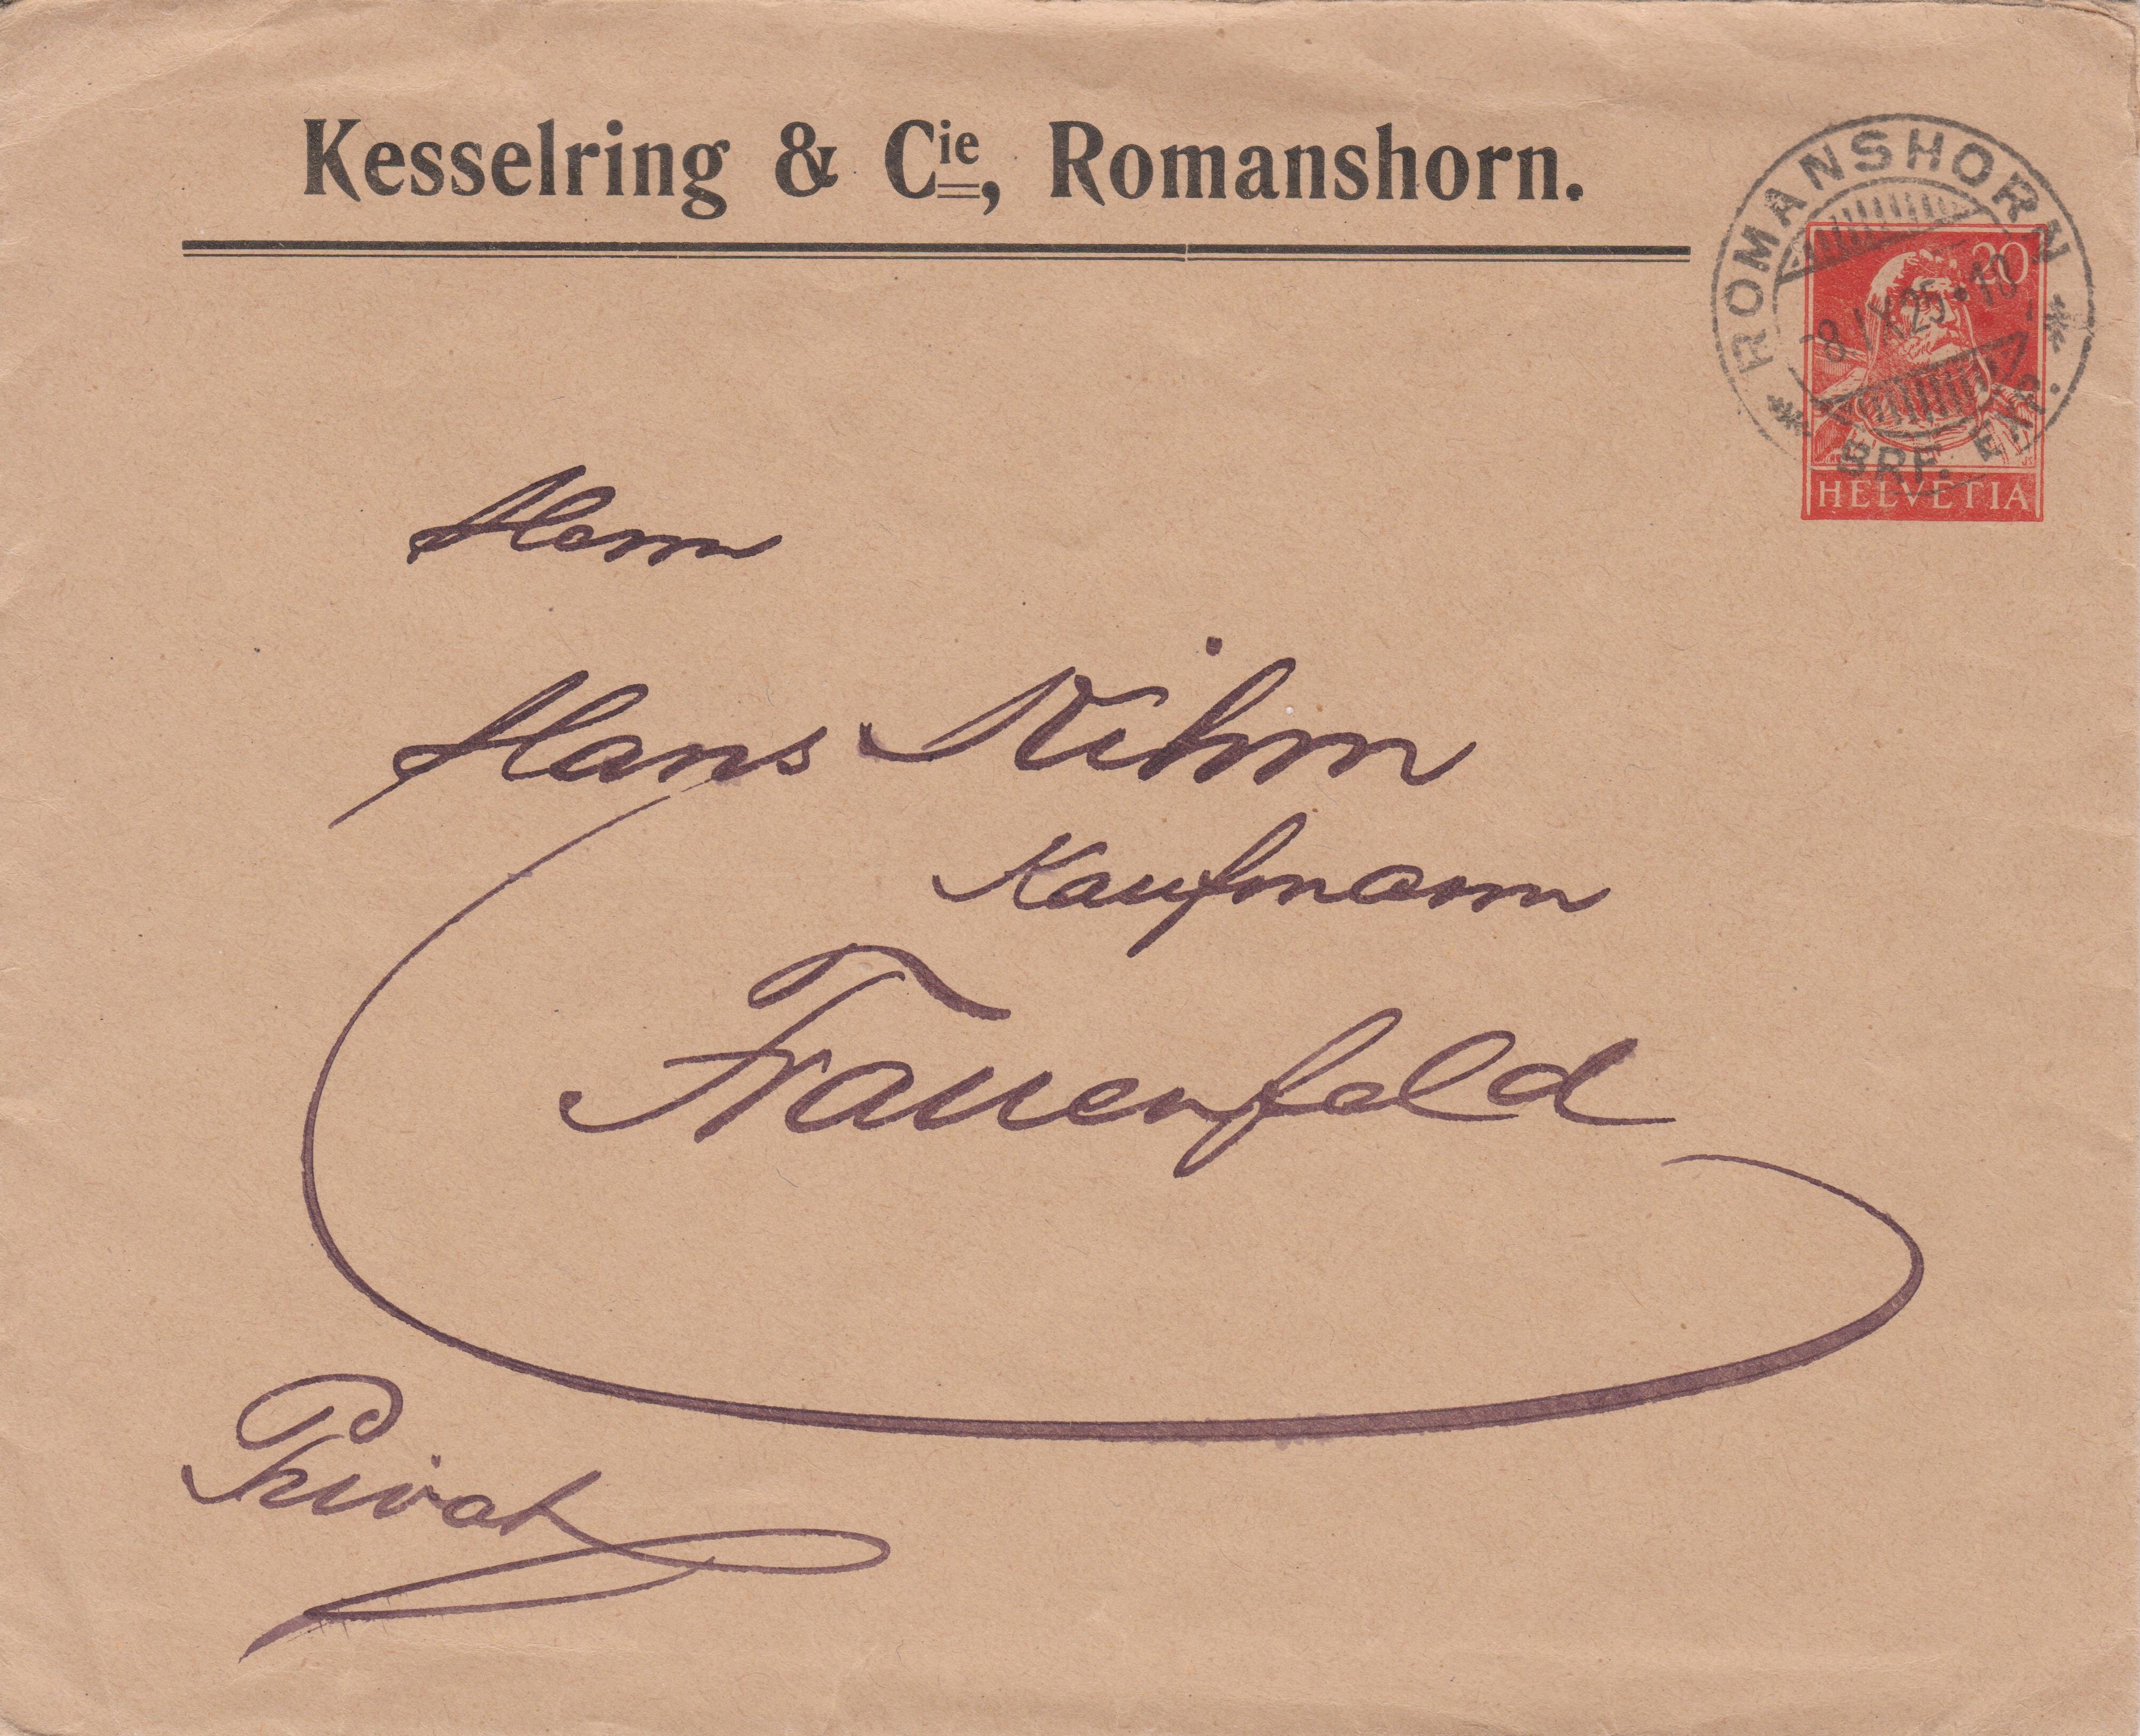 Kesselring & Cie, Romanshorn.
ROMANSHORN
20
-8.IX.25.10
BRF. EXP.
HELVETIA
Herrn
Hans Kihm
Kaufmann
Frauenfeld
Privat